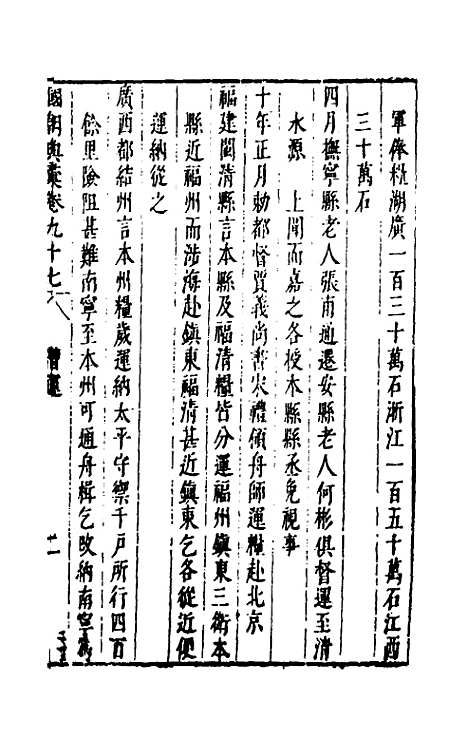 軍俸粮湖廣一百三十萬石浙江一百五十萬石江西
三十萬石
四月撫寧縣老人張甫通遷安縣老人何彬俱督運至清
水源　上聞而嘉之各授本縣縣丞免視事
十年正月勅都督賈義尚書宋禮領舟師運糧赴北京
福建閩清縣言本縣及福清糧皆分運福州鎮東三衛本
縣近福州而涉海赴鎮東福清甚近鎮東乞各從近便
運納從之
廣西都結州言本州糧歲運納太平守禦千戶所行四百
餘里險阻甚難南寧至本州可通舟楫乞改納南寧為
國朝典彙卷九十七
漕運
十一